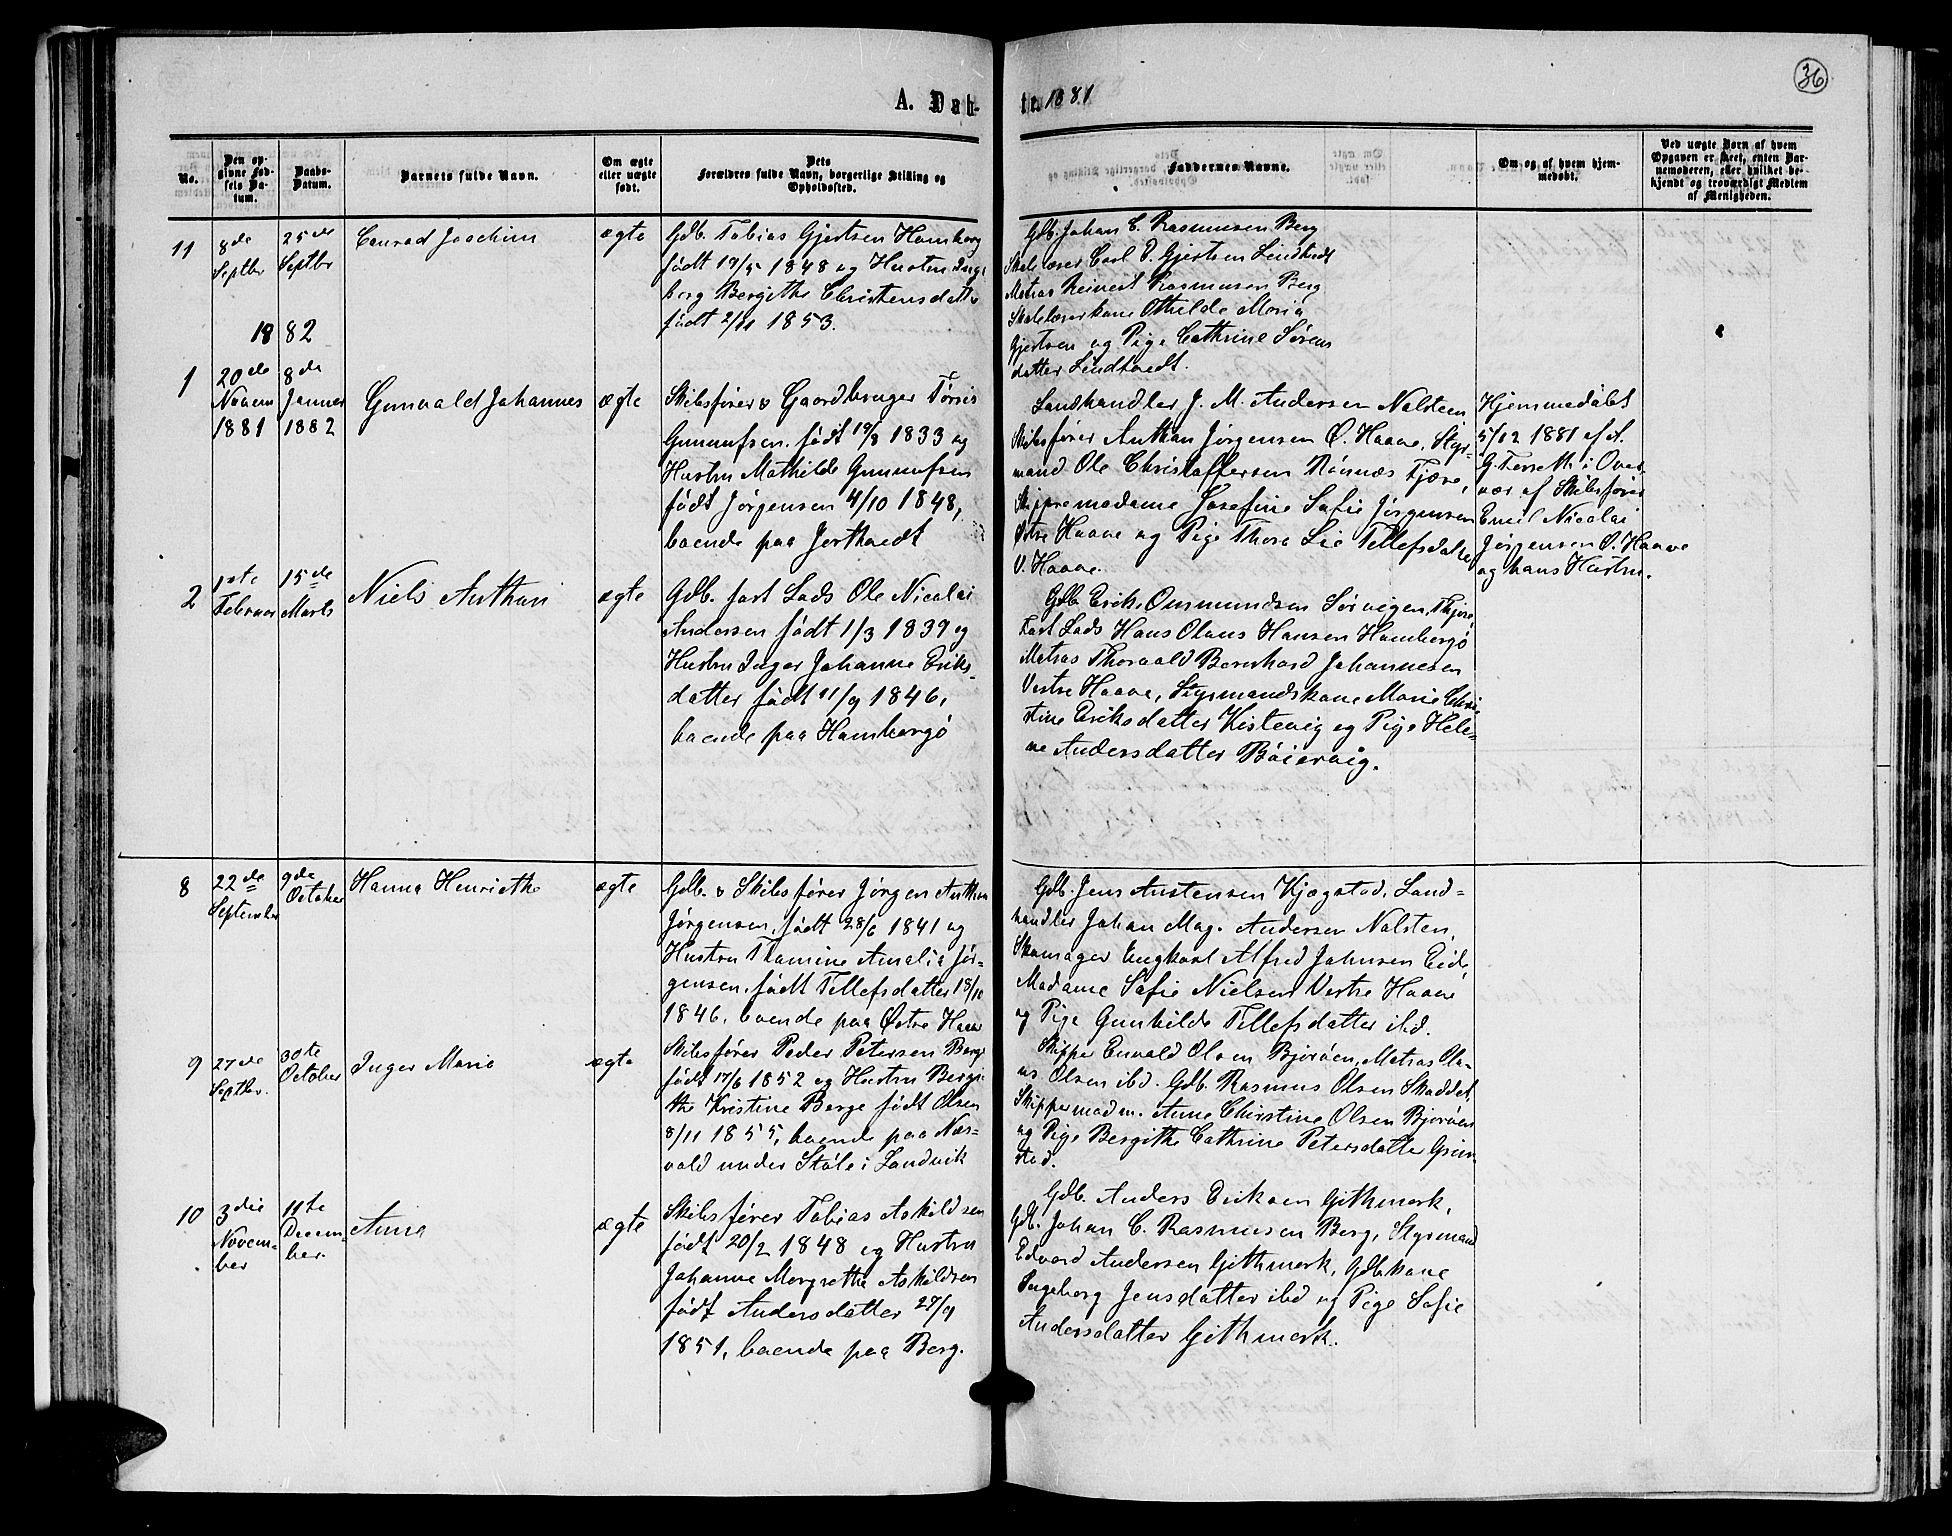 36
A. Døb-
te. 1881
No.
Den op-
givne Fød-
sels Da-
tum.
Daabs-
Datum.
Barnets fulde Navn.
Om ægte
eller uægte
født.
Dets
Forældres fulde Navn, borgerlige Stilling og
Opholdssted.
Faddernes Navne.
Om og af hvem hjem-
medøbt.
Ved uægte Børn af hvem
Opgaven er skeet, enten Bar-
nemoderen, eller hvilket be-
kjendt og troværdigt Medlem
af Menigheden.
11
8de
Septbr
25de
Septbr
Conrad Joachim
ægte
Gdb. Tobias Gjertsen Homborg
født 19/5 1848 og Hustru Inge
borg Bergithe Christensdatter
født 2/11 1853.
Gdb. Johan C. Rasmussen Berg
Skolelærer Carl O. Gjertsen Lindtvedt
Matros Reinert Rasmussen Berg
Skolelærerkone Othilde Maria
Gjertsen og Pige Cathrine Sørens
datter Lindtvedt.
1882
1
20de
Novem
1881
8de
Januar
1882
Gunvald Johannes
ægte
Skibsfører & Gaardbruger Tørris
Gunnufsen, født 19/8 1833 og
Hustru Mathilde Gunnufsen
født Jørgensen 4/10 1848,
boende paa Jortvedt
Landhandler J. M. Andersen Nalsteen
Skibsfører Anthon Jørgensen Ø. Haave, Styr-
mand Ole Christoffersen Rønnæs Fjære,
Skippermadame Josefine Safie Jørgensen
Østre Haave og Pige Thora Lie Tellefsdatter
V. Haave.
Hjemmedøbt
5/12 1881 af A.
G. Terreth i Over
vær af Skibsfører
Emil Nicolai
Jørgensen Ø. Haave
og hans Hustru.
2
1ste
Februar
15de
Marts
Niels Anthon
ægte
Gdb. fast Lods Ole Nicolai
Andersen født 1/3 1839 og
Hustru Inger Johanne Eriks-
datter født 11/9 1846,
boende paa Homborgø
Gdb. Erik Ommundsen Sørvigen, Fjære,
Fast Lods Hans Olaus Hansen Homborgø
Matros Thorvald Bernhard Johannesen
Vestre Haave, Styrmandskone Marie Chri-
stine Eriksdatter Kistevig og Pige Hele-
ne Andersdatter Bøiervig.
8
22de
September
9de
October
Hanna Henriethe
ægte
Gdb. & Skibsfører Jørgen Anthon
Jørgensen, født 28/6 1841 og
Hustru Thomine Amalia Jør-
gensen, født Tellefsdatter 18/10
1846, boende paa Østre Haave
Gdb. Jens Austensen Kjægstad, Land-
handler Johan Mag. Andersen Nalsten,
Skomager Engkart Alfred Johnsen Eide,
Madame Safie Nielsen Vestre Haave
og Pige Gunhilde Tellefsdatter ibd.
9
27de
Septbr.
30te
October
Inger Marie
ægte
Skibsfører Peder Petersen Berge
født 17/6 1852 og Hustru Bergi-
the Kristine Berge født Olsen
8/11 1855, boende paa Næs-
vold under Støle i Landvik
Skipper Envald Olsen Bjorøen, Matros Ola-
us Olsen ibd. Gdb. Rasmus Olsen Skaddet
Skippermadm. Anne Christine Olsen Bjorøen
og Pige Bergithe Cathrine Petersdatter Grim-
stad.
10
3die
Novem-
ber
11te
Decem-
ber.
Anna
ægte
Skibsfører Tobias Askildsen
født 20/2 1848 og Hustru
Johanne Margrethe Askildsen
født Andersdatter 27/9
1851, boende paa Berg.
Gdb. Anders Eriksen Githmark,
Gdb. Johan C. Rasmussen Berg, Styrmand
Edvard Andersen Githmark, Gdbkone
Ingeborg Jensdatter ibd og Pige Sofie
Andersdatter Githmark.